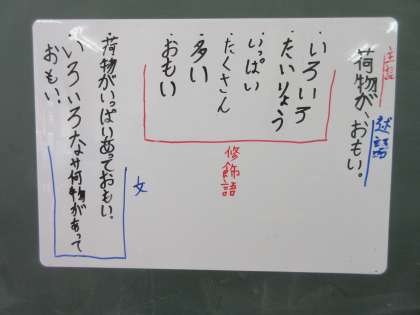 主語
述語
荷物が、おもい。
・いろいろ
・たいりょう
・いっぱい
・たくさん
・多い
・おもい
修飾語
・荷物がいっぱいあっておもい。
・いろいろなサ荷物があって
おもい。
文